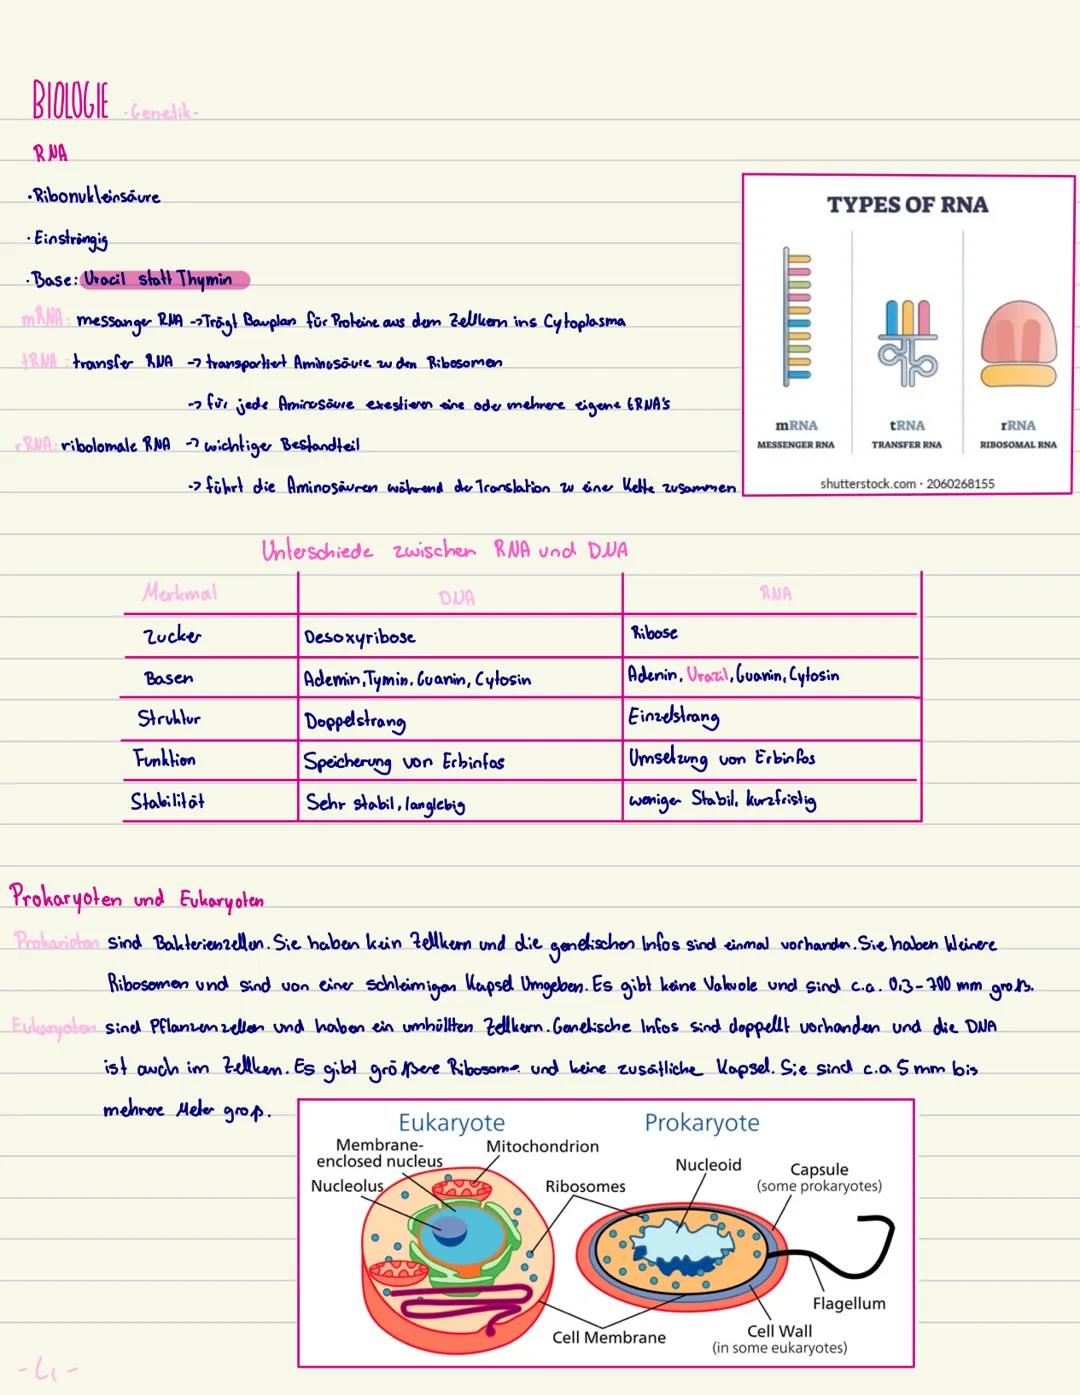 BIOLOGIE -Genetik-
RNA
·Ribonukleinsäure
·Einsträngig
·Base: Uracil statt Thymin
mRNA: messanger RNA -> Trägt Bauplan für Proteine aus dem Zellkern ins Cytoplasma
tRNA: transfer RNA -> transportiert Aminosäure zu den Ribosomen
-> für jede Aminosäure exestieren eine oder mehrere eigene tRNA's
rRNA: ribolomale RNA -> wichtiger Bestandteil
-> führt die Aminosäuren während der Translation zu einer Kette zusammen
TYPES OF RNA
mRNA tRNA rRNA
MESSENGER RNA TRANSFER RNA RIBOSOMAL RNA
shutterstock.com · 2060268155
Unterschiede zwischen RNA und DNA
Merkmal DNA RNA
Zucker Desoxyribose Ribose
Basen Ademin, Tymin. Guanin, Cytosin Adenin, Urazil, Guanin, Cytosin
Struktur Doppelstrang Einzelstrang
Funktion Speicherung von Erbinfos Umsetzung von Erbinfos
Stabilität Sehr stabil, langlebig weniger Stabil, kurzfristig
Prokaryoten und Eukaryoten
Prokarioten sind Bakterienzellen. Sie haben kein Zellkern und die genetischen Infos sind einmal vorhanden. Sie haben kleinere
Ribosomen und sind von einer schleimigen Kapsel Umgeben. Es gibt keine Vakuole und sind c.a. 0,3-700 mm groß.
Eukaryoten sind Pflanzenzellen und haben ein umhüllten Zellkern. Genetische Infos sind doppellt vorhanden und die DNA
ist auch im Zellken. Es gibt größere Ribosome und keine zusätliche Kapsel. Sie sind c.a 5 mm bis
mehrere Meter groß.
Eukaryote Prokaryote
Membrane-
enclosed nucleus
Mitochondrion
Nucleolus
Ribosomes
Nucleoid
Capsule
(some prokaryotes)
Flagellum
Cell Membrane
Cell Wall
(in some eukaryotes)
-4-